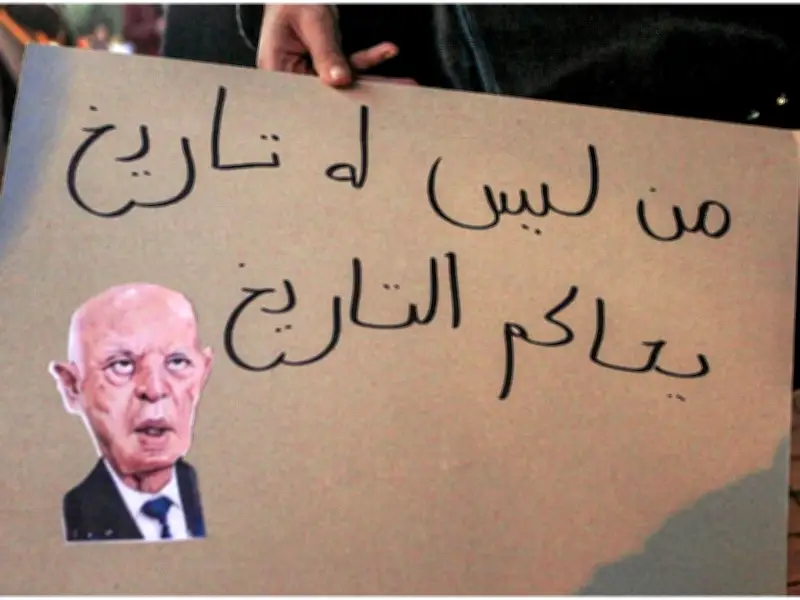 من ليس له تاريخ
يحاكم التاريخ